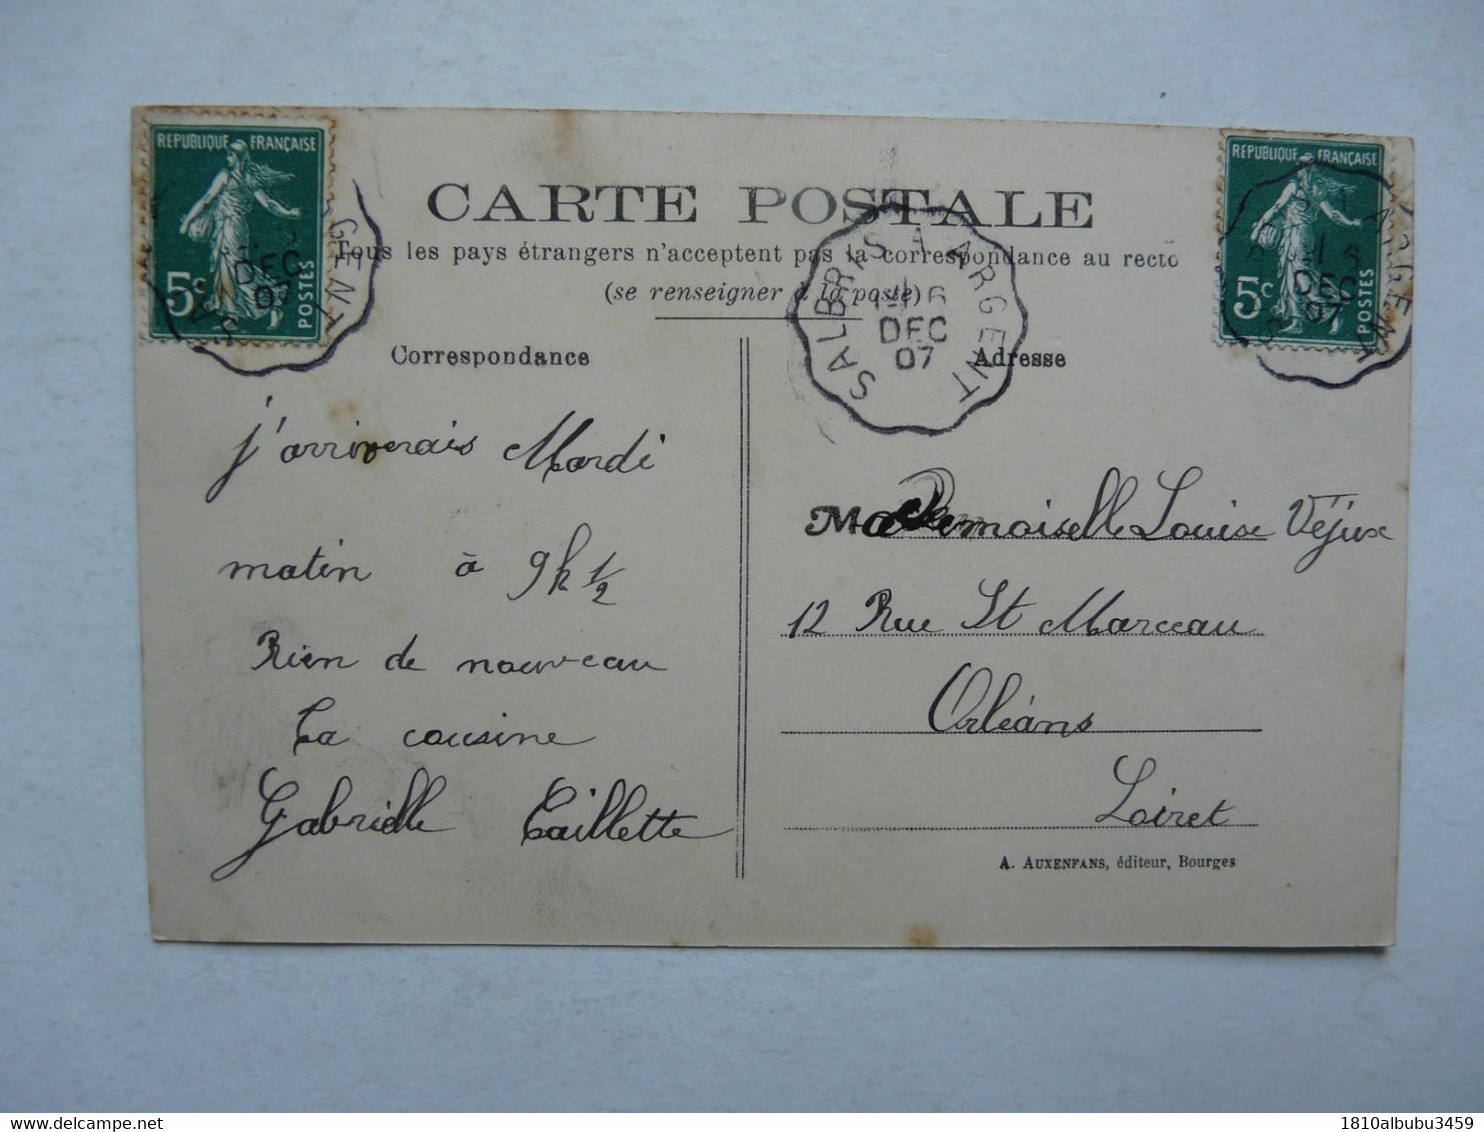 REPUBLIQUE FRANÇAISE
5c
POSTES
DEC
07
GENT
REPUBLIQUE FRANÇAISE
5c
POSTES
DEC
07
ARGENT
CARTE POSTALE
Tous les pays étrangers n'acceptent pas la correspondance au recto
(se renseigner à la poste)
SALBRIS A ARGENT
DEC
07
Correspondance
j'arriverais Mardi
matin à 9h 1/2
Rien de nouveau
Ta cousine
Gabrielle Taillette
Adresse
Mademoiselle Louise Véjux
12 Rue St Marceau
Orléans
Loiret
A. AUXENFANS, éditeur, Bourges
delcampe.net
1810albubu3459